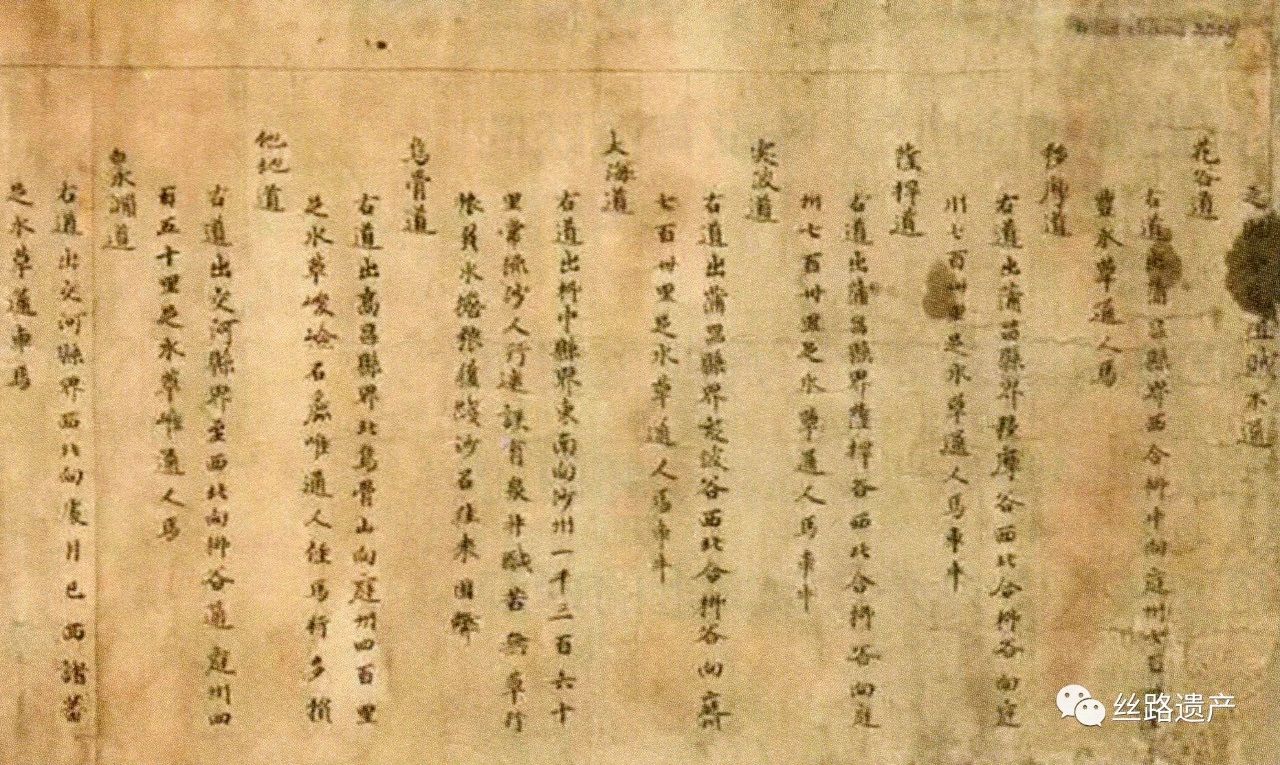 盗賊不通
花谷道
右道出蒲昌縣界西合柳中向庭州七百
豐水草通人馬
移摩道
右道出蒲昌縣界移摩谷西北合柳谷向庭
州七百卅里足水草通人馬車牛
薩捍道
右道出蒲昌縣界薩捍谷西北合柳谷向庭
州七百卅里足水草通人馬車牛
突波道
右道出蒲昌縣界突波谷西北合柳谷向庭州
七百卅里足水草通人馬車牛
大海道
右道出柳中縣界東南向沙州一千三百六十
里常流沙人行迷誤有泉井鹹苦無草行
旅負水擔粮履踐沙石往來困弊
烏骨道
右道出高昌縣界北烏骨山向庭州四百里
足水草峻嶮石麁唯通人徑馬行多損
他地道
右道出交河縣界至西北向柳谷通庭州四
百五十里足水草唯通人馬
白水澗道
右道出交河縣界西北向處月已西諸蕃
足水草通車馬
丝路遗产